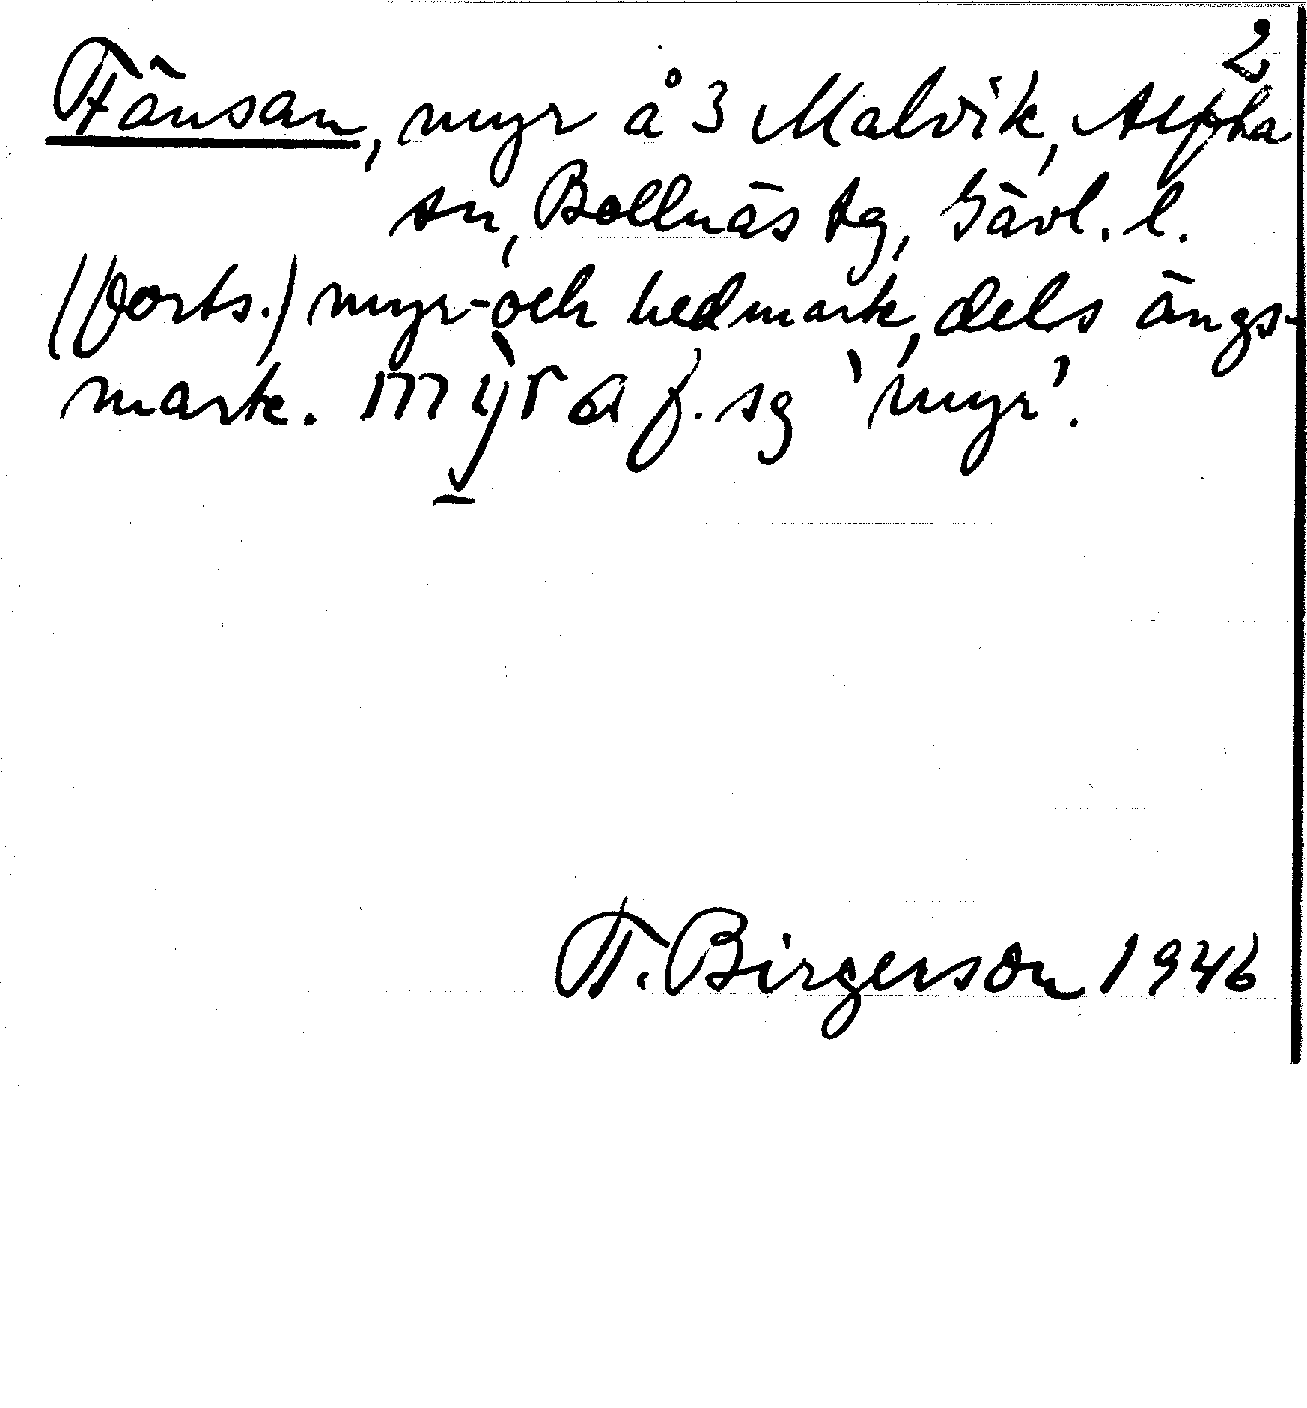 2
Fänsan, myr å 3 Malvik, Alfta
sn, Bollnäs tg, Gävl. l.
(forts.) myr- och hedmark, dels ängs-
mark. f. sg 'myr'.
T. Birgerson 1946